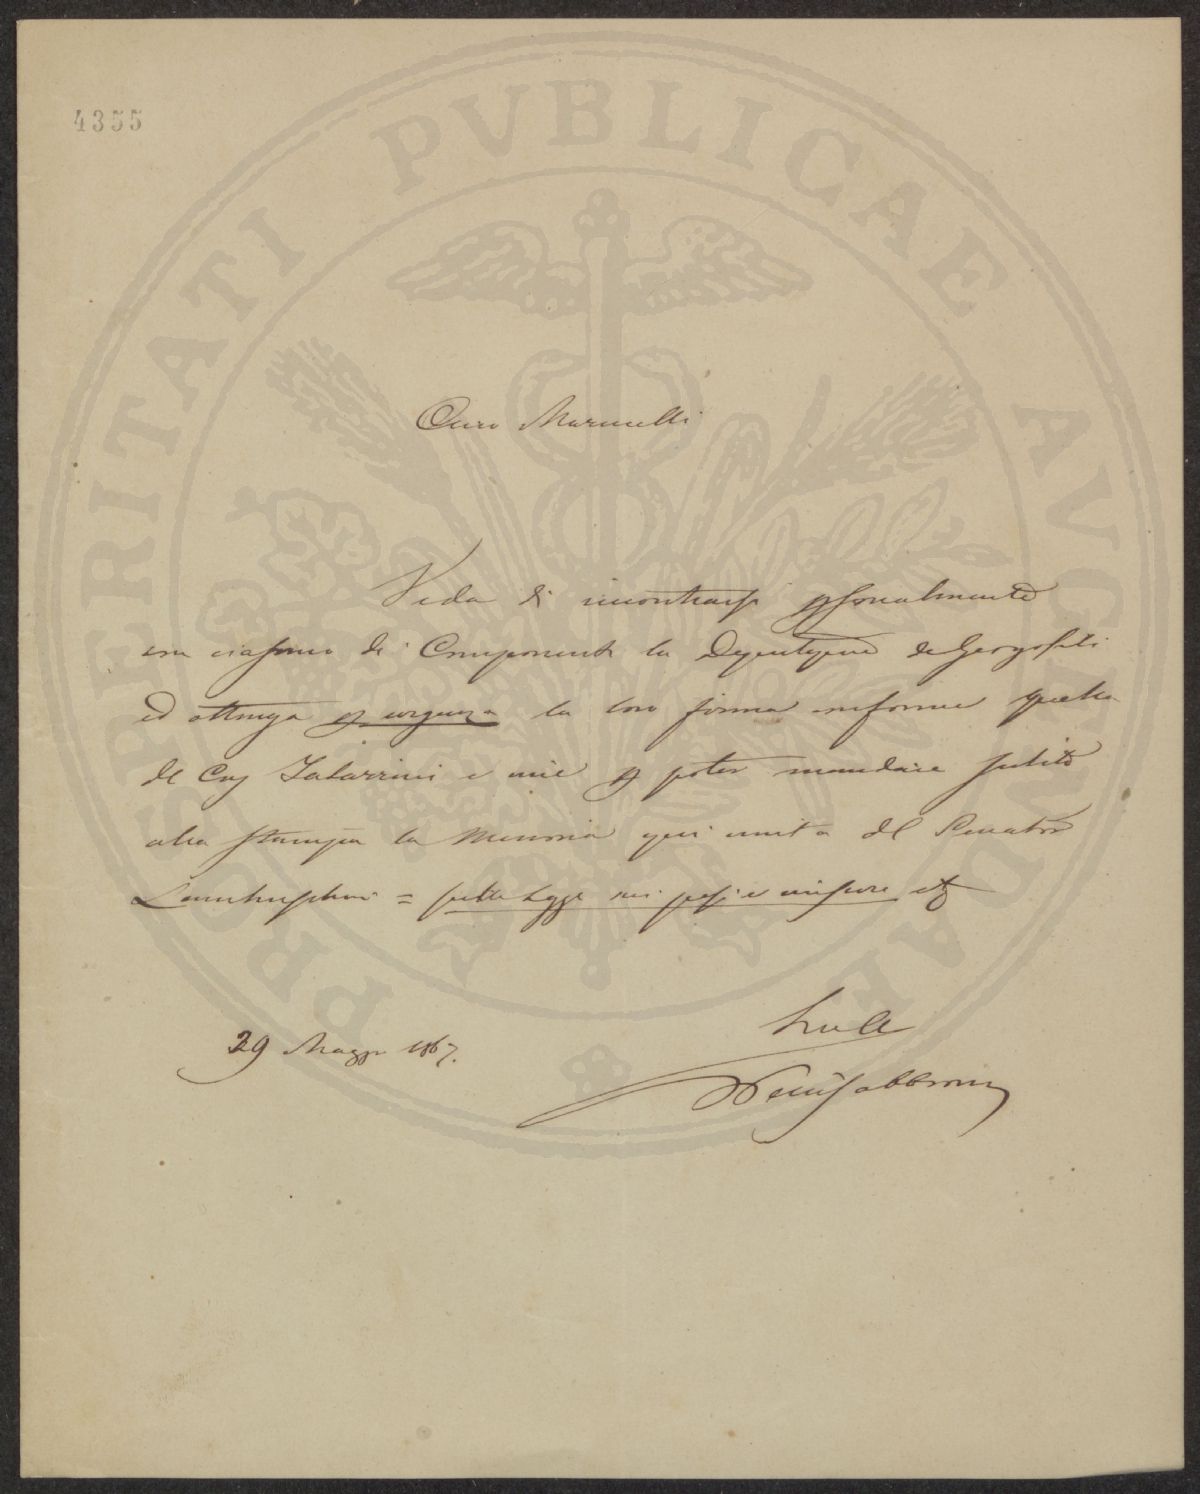 4355
PROSPERITATI PVBLICAE AVGENDAE
Caro Marucelli
Veda di incontrarsi psonalmente
con ciascuno di Componenti la Deputazione de Georgofili
ed ottenga p urgenza la loro firma insieme quella
del Cav Tabarrini e mia p poter mandare subito
alla stampa la Memoria qui unita del Senator
Lambruschini = sulla Legge sui pesi e misure etc
29 Maggio 1867.